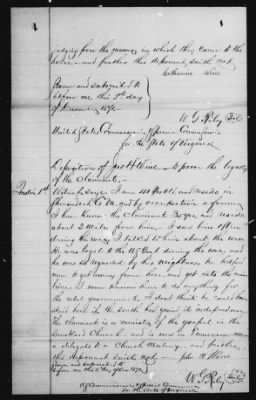 judging from the manner in which they came to the
house and further this deponent saith not
Catharine Wine
Sworn and subscribed to
before me this 3rd day
of 1872
W G Riley
United States Commissioner & Special Commissioner
for the State of Virginia
Deposition of John H Wine to prove the loyalty
of the Claimant
Question 1st
Witness says I am years old and reside in
Shenandoah Co Va and by occupation a farmer
I have known the Claimant years, and reside
about 2 miles from him, I saw him often
during the war, I talked to him about the war
He was loyal to the US Govt during the war, and
he was so regarded by his neighbors, he helped
men to get away from here and get into the union
lines I never knew him to do anything for
the rebel government, I don't think he could have
The Claimant is a minister of the gospel in the
Church and is now in Tennessee
a delegate to a Church Meeting, and further
this deponent saith not John H Wine
W G Riley
US Commissioner & Special Commissioner
for the State of Virginia